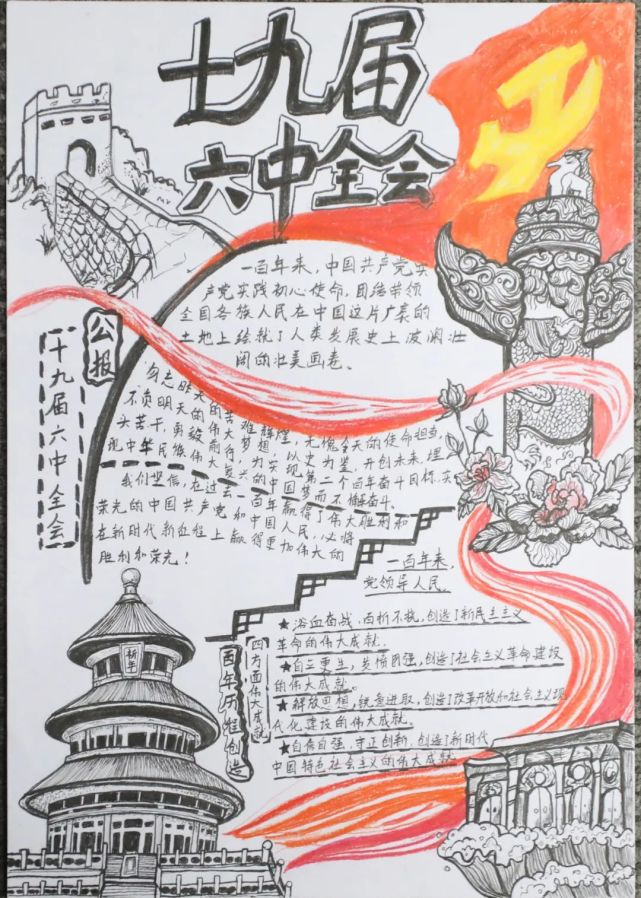 十九届
六中全会
一百年来，中国共产党实
产党实践初心使命，团结带领
全国各族人民在中国这片广袤的
土地上绘就了人类发展史上波澜壮
阔的壮美画卷。
公报
十九届六中全会
勿忘昨天的苦难辉煌，无愧今天的使命担当，
不负明天的伟大梦想，以史为鉴，开创未来，埋
头苦干，勇毅前行，为实现第二个百年奋斗目标，实
现中华民族伟大复兴的中国梦而不懈奋斗。
我们坚信，在过去一百年赢得了伟大胜利和
荣光的中国共产党和中国人民，必将
在新时代新征程上赢得更加伟大的
胜利和荣光！
一百年来，
党领导人民。
★浴血奋战、百折不挠，创造了新民主主义
革命的伟大成就。
★自立更生、发愤图强，创造了社会主义革命建设
的伟大成就。
★解放思想、锐意进取，创造了改革开放和社会主义现
代化建设的伟大成就。
★自信自强、守正创新，创造了新时代
中国特色社会主义的伟大成就
百年历程创造
四方面伟大成就
祈年